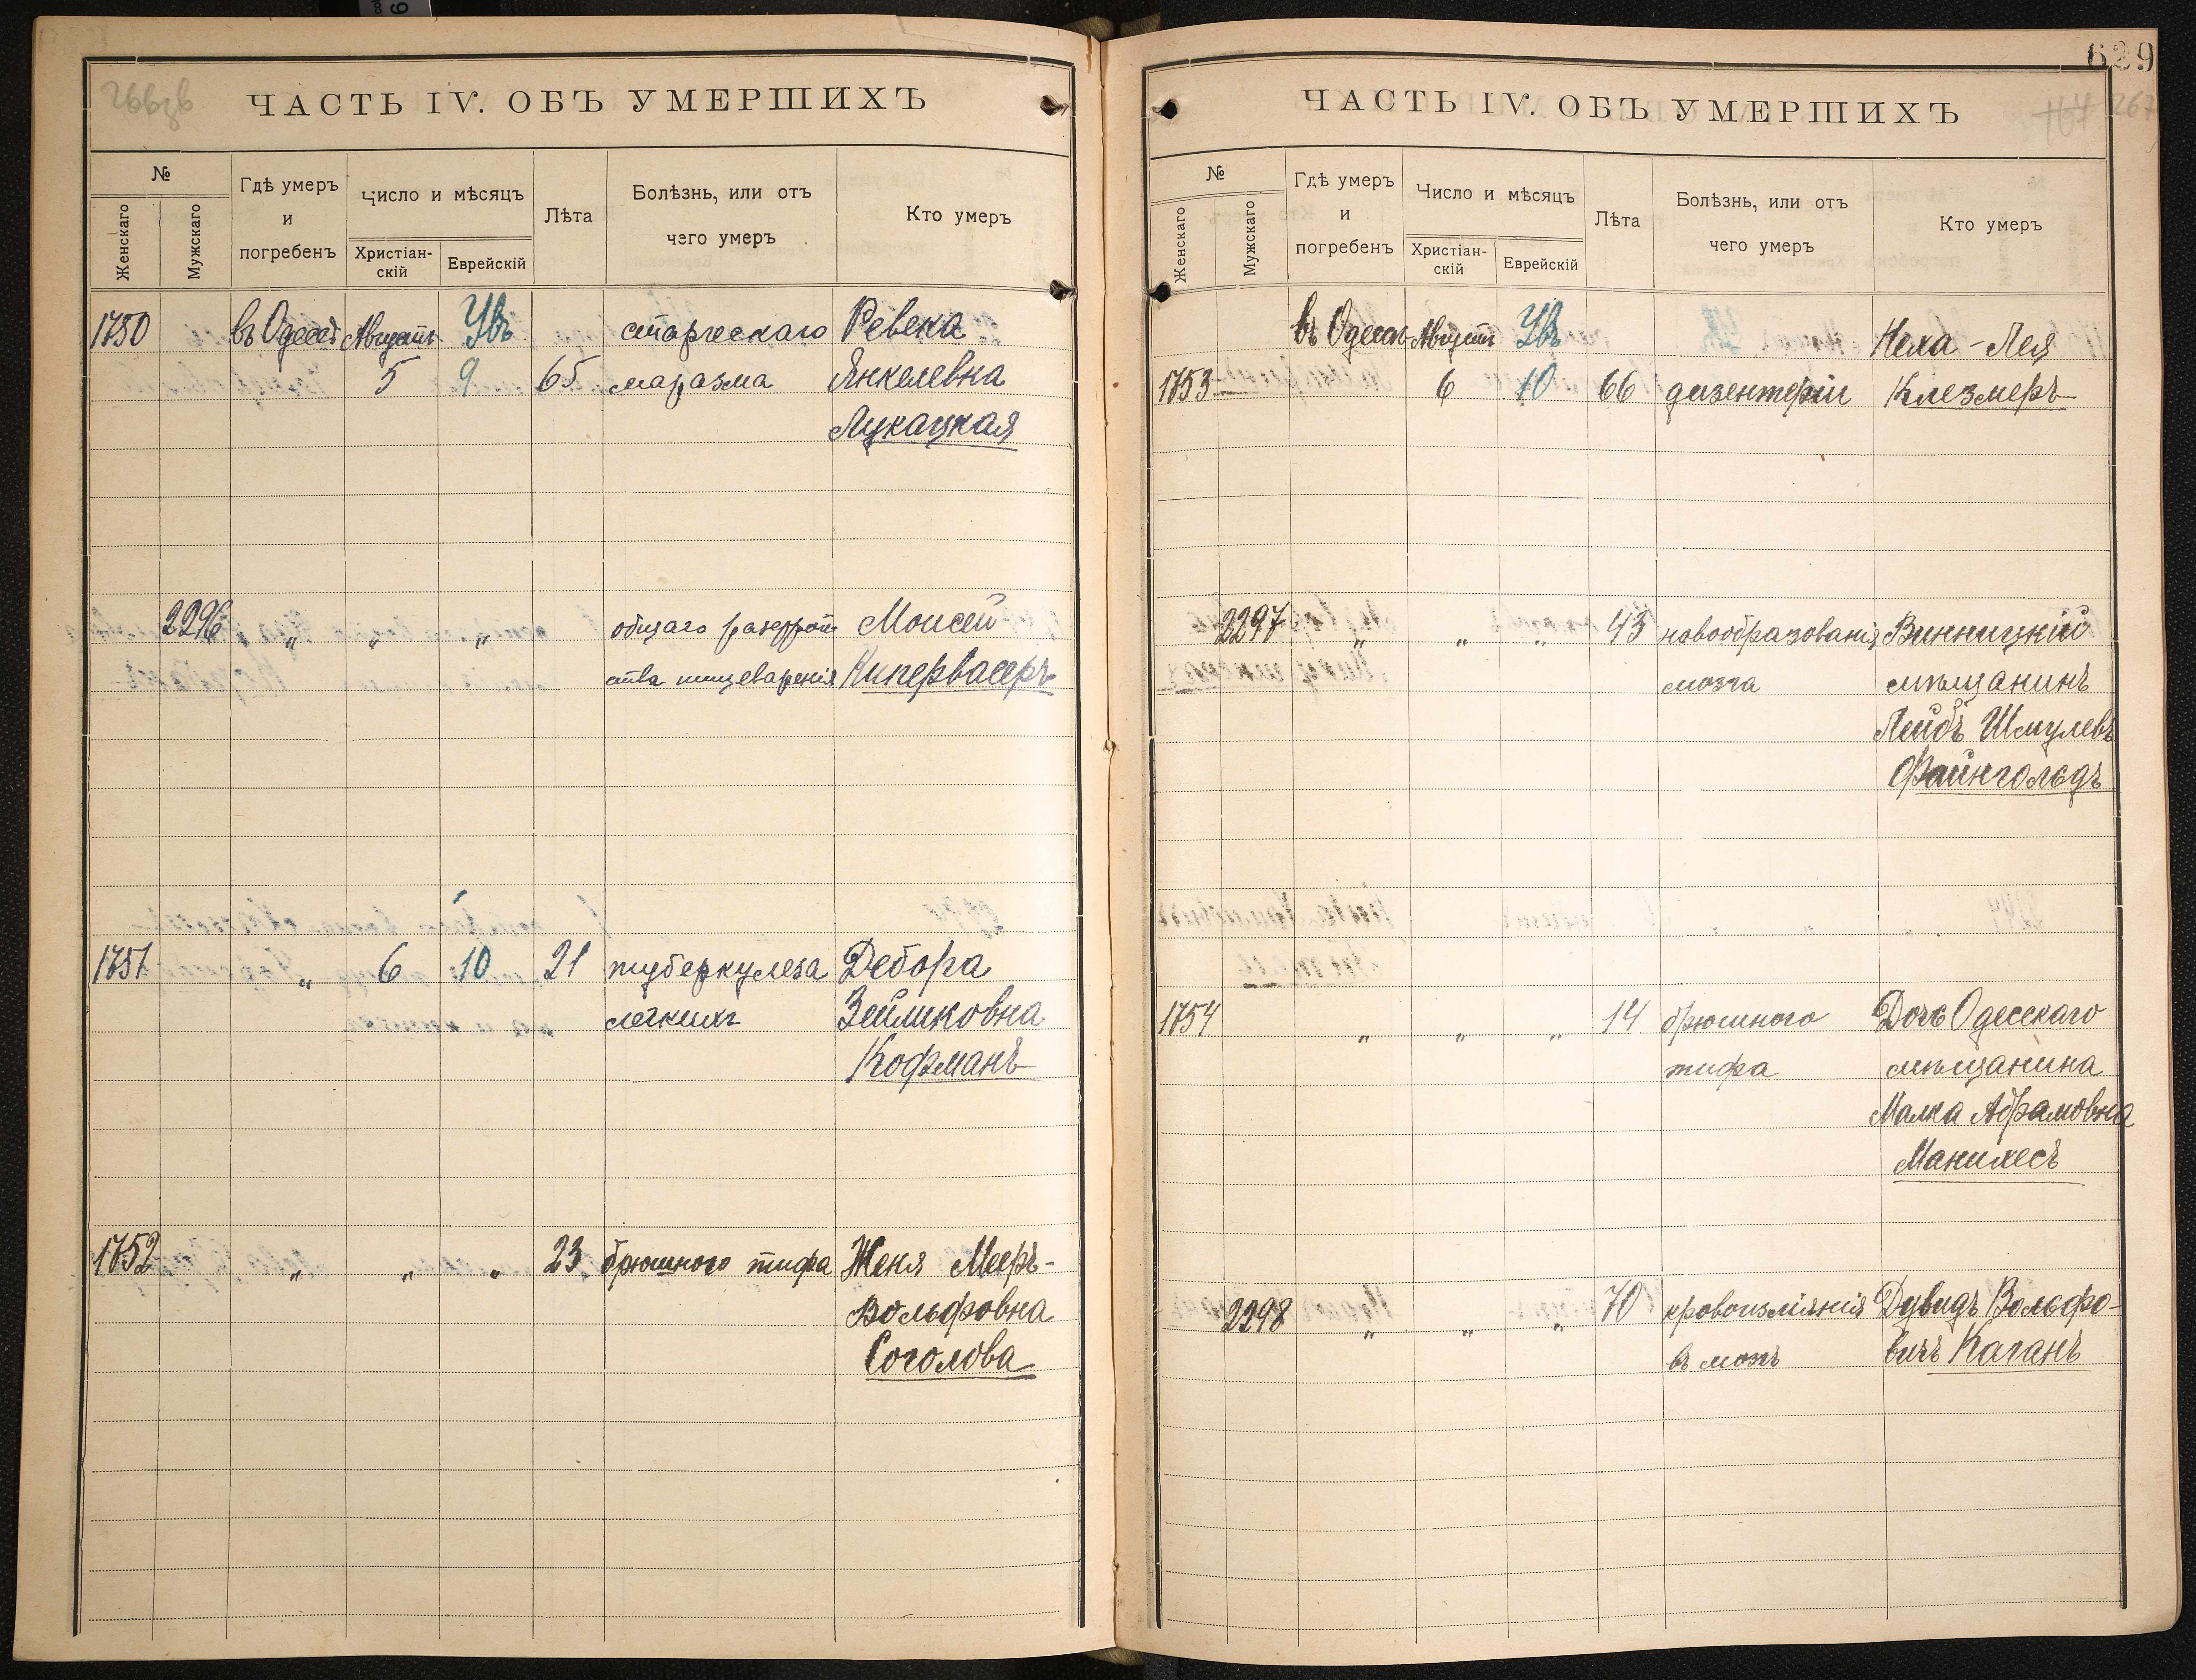 629
266зв
ЧАСТЬ IV. ОБЪ УМЕРШИХЪ
№
Женскаго
Мужскаго
Гдѣ умеръ
и
погребенъ
Число и мѣсяцъ
Христіан-
скій
Еврейскій
Лѣта
Болѣзнь, или отъ
чего умеръ
Кто умеръ
1750 въ Одессѣ Августъ Увъ старческаго Ревека
5 9 65 маразма Янкелевна
Лукацкая
2296 " " " общаго разстрой
ства пищеваренія
Моисей
Кипервасеръ
1751 " 6 10 21 туберкулеза Дебора
легкихъ Зейликовна
Кофманъ
1752 " " " 23 брюшного тифа Женя Мееръ-
Вольфовна
Соголова
ЧАСТЬ IV. ОБЪ УМЕРШИХЪ
267
№
Женскаго
Мужскаго
Гдѣ умеръ
и
погребенъ
Число и мѣсяцъ
Христіан-
скій
Еврейскій
Лѣта
Болѣзнь, или отъ
чего умеръ
Кто умеръ
въ Одессѣ Августъ Увъ Неха-Лея
1753 6 10 66 дизентеріи Клезмеръ
2297 " " " 43 новообразованія Винницкій
мозга мѣщанинъ
Лейбъ Шмулевъ
Файнгольдъ
1754 " " " 14 брюшного Дочь Одесскаго
тифа мѣщанина
Малка Абрамовна
Манилесъ
2298 " " " 70 кровоизліянія Дувидъ Вольфо-
въ мозгъ вичъ Каганъ